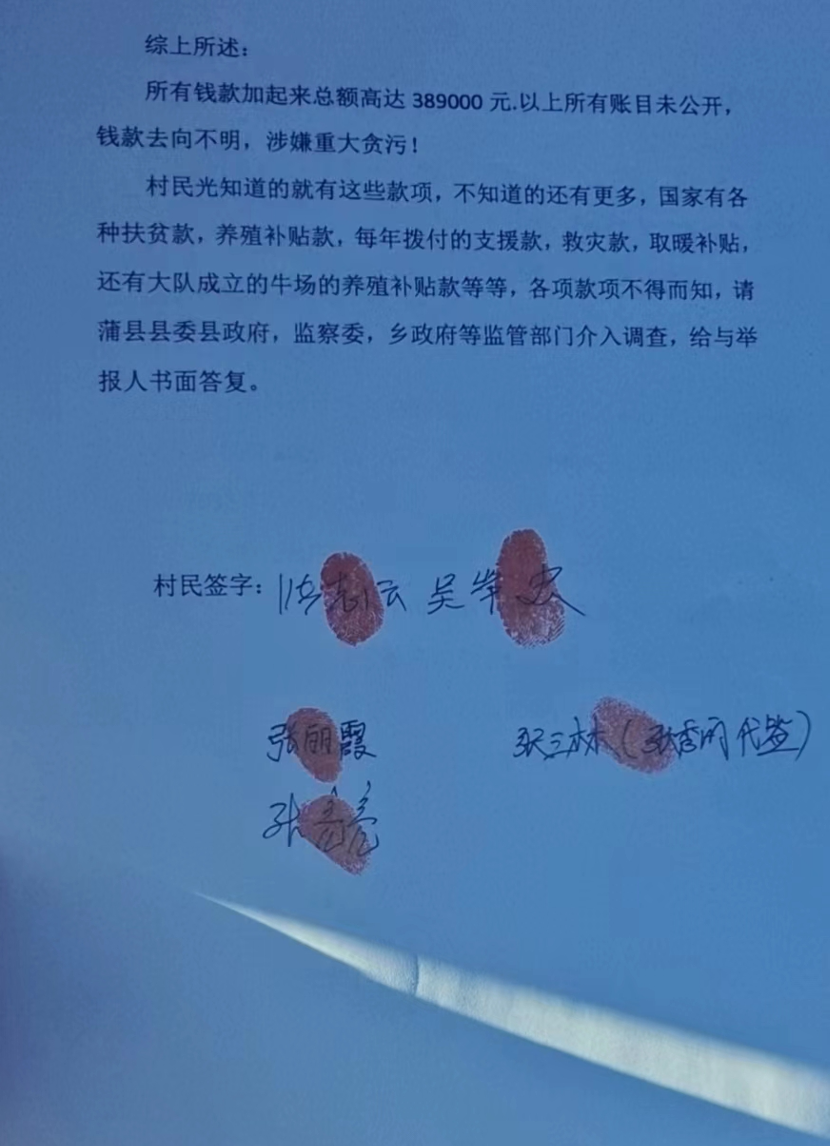 综上所述：
所有钱款加起来总额高达 389000 元.以上所有账目未公开，
钱款去向不明，涉嫌重大贪污！
村民光知道的就有这些款项，不知道的还有更多，国家有各
种扶贫款，养殖补贴款，每年拨付的支援款，救灾款，取暖补贴，
还有大队成立的牛场的养殖补贴款等等，各项款项不得而知，请
蒲县县委县政府，监察委，乡政府等监管部门介入调查，给与举
报人书面答复。
村民签字：
张丽霞 张三林（代签）
张亮亮